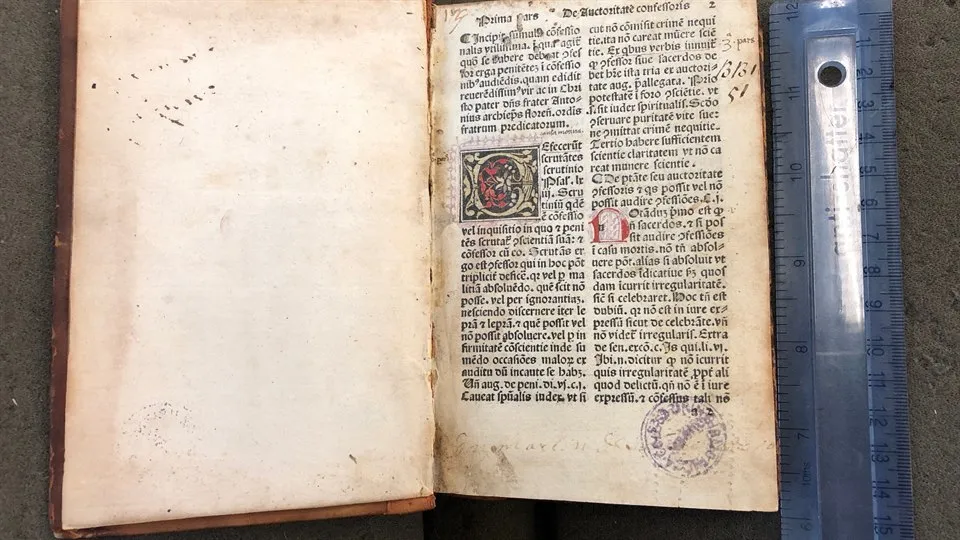 Prima Pars De Auctoritate confessoris 2
Incipit sumula cōfessio
nalis vtilissima. in qua agit̄
quō se habere debeat ꝯfes
sor erga penitētes i cōfessio
nibꝰ audiēdis. quam edidit
reuerēdissimꝰ vir ac in Chri
sto pater dn̄s frater Anto-
nius archiep̄s floren̄. ordis
fratrum predicatorum.
Efecerūt
scrutātes
scrutinio
Psal. lx
iij. Scru
tiniū qdē
ē cōfessio
vel inquisitio in quo ⁊ peni
tēs scrutat̄ ꝯscientiā suā: ⁊
cōfessor cū eo. Scrutās er
go est ꝯfessor qui in hoc pōt
triplicit̄ deficē. qꝛ vel ꝑ ma
litiā absoluēdo. quē scit nō
posse. vel per ignorantiaꝫ.
nesciendo discernere iter le
prā ⁊ leprā. ⁊ quē possit vel
nō possit absoluere. vel ꝑ in
firmitatē cōscientie inde su
mēdo occasiōes maloꝝ ex
auditu dū incaute se habꝫ.
Vn̄ aug. de peni. di. vj. c. j.
Caueat spūalis iudex vt si
cut nō cōmisit crimē nequi
tie. ita nō careat mūere sciē
tie. Ex qbus verbis innuit̄
ꝙ ꝯfessor siue sacerdos de
bet hr̄e ista tria ex auctori-
tate aug. p̄allegata. Primo
potestatē i foro ꝯsciētie. vt
sit iudex spiritualis. Scd̄o
ꝯseruare puritatē vite sue:
ne ꝯmittat crimē nequitie.
Tertio habere sufficientem
scientie claritatem vt nō ca
reat munere scientie.
De ptāte seu auctoritate
ꝯfessoris ⁊ qs possit vel nō
possit audire ꝯfessiōes. C. j.
Otāduꝫ pmo est ꝙ
n̄ sacerdos. ⁊ si pos
sit audire ꝯfessiōes
i casu mortis. nō tn̄ absol-
uere pōt. alias si absoluit vt
sacerdos idicatiue fꝫ quos
dam icurrit irregularitatē.
sic̄ si celebraret. Hoc tn̄ est
dubiū. qꝛ nō est in iure ex-
pressū sicut de celebrāte. vn̄
nō videt̄ irregularis. Extra
de sen. excō. c. Is qui. li. vj.
Ibi. n. dicitur ꝙ nō icurrit
quis irregularitatē ꝓpt̄ ali
quod delictū. qn̄ nō ē i iure
expressū. ⁊ cōfessus tali nō
a 2
3. pars
13131
51